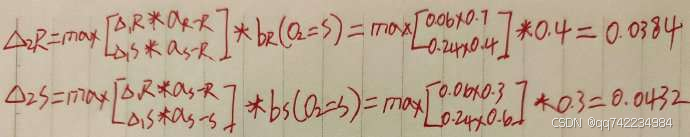 Δ₂R=max[Δ₁R*aR-R Δ₁S*aS-R]*bR(O₂=S)=max[0.06×0.7 0.24×0.4]*0.4=0.0384
Δ₂S=max[Δ₁R*aS-R Δ₁S*aS-S]*bS(O₂=S)=max[0.06×0.3 0.24×0.6]*0.3=0.0432
CSDN @qq742234984